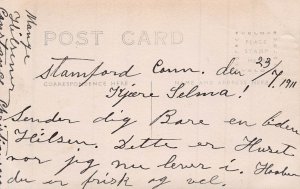 POST CARD
PLACE
STAMP
HERE
Stamford Conn. den 23/7.1911
CORRESPONDENCE HERE
Kjære Selma!
Sender dig Bare en liden
Hilsen. Dette er Huset
vor jeg nu lever i. Haaber
du er frisk og vel.
Mange
Hilsner